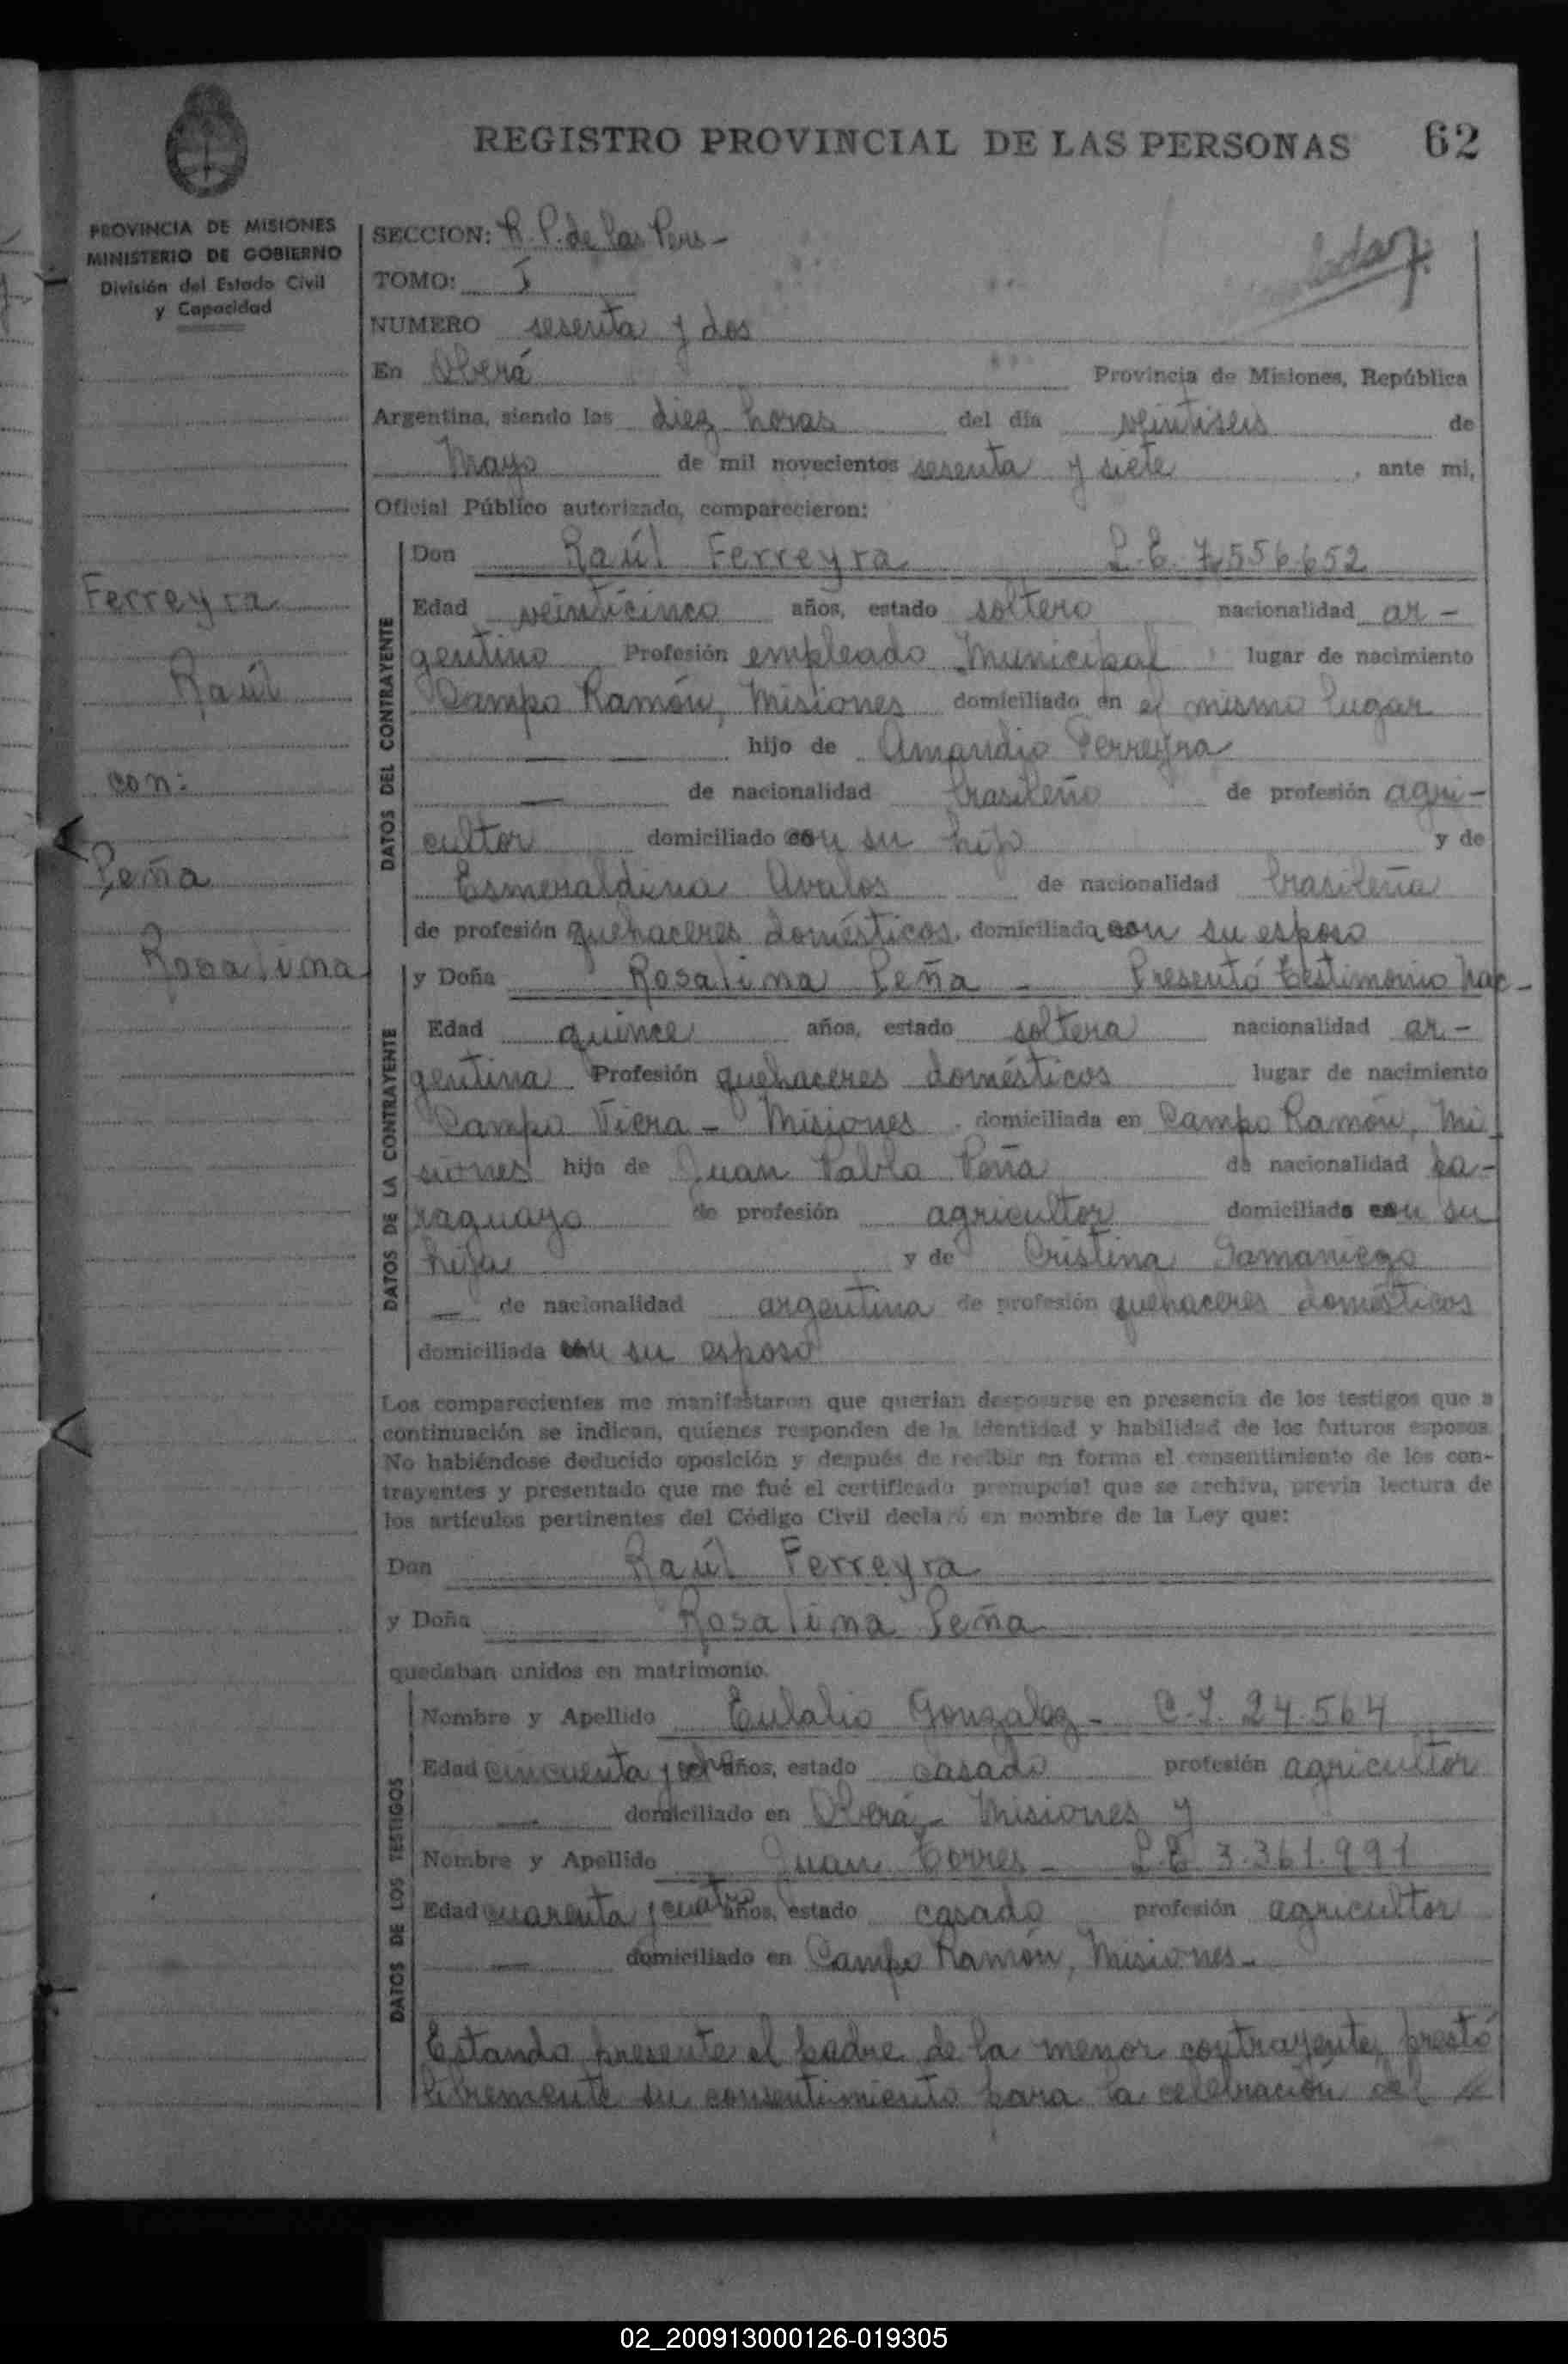 REGISTRO PROVINCIAL DE LAS PERSONAS 62
PROVINCIA DE MISIONES
MINISTERIO DE GOBIERNO
División del Estado Civil
y Capacidad
SECCION: R. P. de las Pers-
TOMO: I
NUMERO sesenta y dos
En Oberá Provincia de Misiones, República
Argentina, siendo las diez horas del día veintiseis de
Mayo de mil novecientos sesenta y siete, ante mi,
Oficial Público autorizado, comparecieron:
Ferreyra
Raúl
con:
Peña
Rosalina
DATOS DEL CONTRAYENTE
Don Raúl Ferreyra L.E. 7.556.652
Edad veinticinco años, estado soltero nacionalidad ar-
gentino Profesión empleado Municipal lugar de nacimiento
Campo Ramón, Misiones domiciliado en el mismo lugar
— — hijo de Amandio Ferreyra
— de nacionalidad brasileño de profesión agri-
cultor domiciliado con su hijo y de
Esmeraldina Avalos de nacionalidad brasileña
de profesión quehaceres domésticos, domiciliada con su esposo
DATOS DE LA CONTRAYENTE
y Doña Rosalina Peña - Presentó testimonio nac-
Edad quince años, estado soltera nacionalidad ar-
gentina Profesión quehaceres domésticos lugar de nacimiento
Campo Viera - Misiones. domiciliada en Campo Ramón, Mi
siones hija de Juan Pablo Peña de nacionalidad pa-
raguayo de profesión agricultor domiciliado con su
hija y de Cristina Samaniego
— de nacionalidad argentina de profesión quehaceres domésticos
domiciliada con su esposo
Los comparecientes me manifestaron que querían desposarse en presencia de los testigos que a
continuación se indican, quienes responden de la identidad y habilidad de los futuros esposos.
No habiéndose deducido oposición y después de recibir en forma el consentimiento de los con-
trayentes y presentado que me fué el certificado prenupcial que se archiva, previa lectura de
los artículos pertinentes del Código Civil declaró en nombre de la Ley que:
Don Raúl Ferreyra
y Doña Rosalina Peña
quedaban unidos en matrimonio.
DATOS DE LOS TESTIGOS
Nombre y Apellido Eulalio Gonzalez - C.I. 24.564
Edad cincuenta y ocho años, estado casado profesión agricultor
— domiciliado en Oberá - Misiones y
Nombre y Apellido Juan Torres - L.E. 3.361.991
Edad cuarenta y cuatro años, estado casado profesión agricultor
— domiciliado en Campo Ramón, Misiones -
Estando presente el padre de la menor contrayente, prestó
libremente su consentimiento para la celebración del
02_200913000126-019305